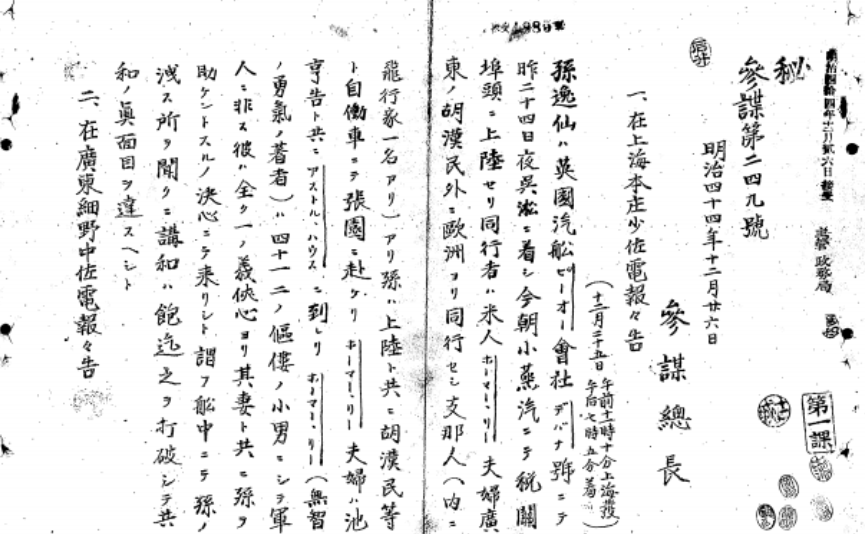 明治四拾四年十二月貳六日接受
主管政務局
第一課
秘
參謀第二四九號
明治四十四年十二月廿六日
參謀總長
一、在上海本庄少佐電報々告
(十二月二十五日 午前十時十分上海發
午后七時五分着)
孫逸仙ハ英國汽船ピーオー會社デバナ号ニテ
昨二十四日夜呉淞ニ着シ今朝小蒸汽ニテ税關
埠頭ニ上陸セリ同行者ハ米人ホーマー、リー夫婦廣
東ノ胡漢民外ニ歐洲ヨリ同行セシ支那人(内ニ
飛行家一名アリ)アリ孫ハ上陸ト共ニ胡漢民等
ト自働車ニテ張園ニ赴ケリホーマー、リー夫婦ハ池
亨吉ト共ニアストル、ハウスニ到レリホーマー、リー(無智
ノ勇氣ノ著者)ハ四十一二ノ傴僂ノ小男ニシテ軍
人ニ非ス彼ハ全ク一ノ義俠心ヨリ其妻ト共ニ孫ヲ
助ケントスルノ決心ニテ来リシト謂フ船中ニテ孫ノ
洩ス所ヲ聞クニ講和ハ飽迄之ヲ打破シテ共
和ノ眞面目ヲ違スヘシト
二、在廣東細野中佐電報々告